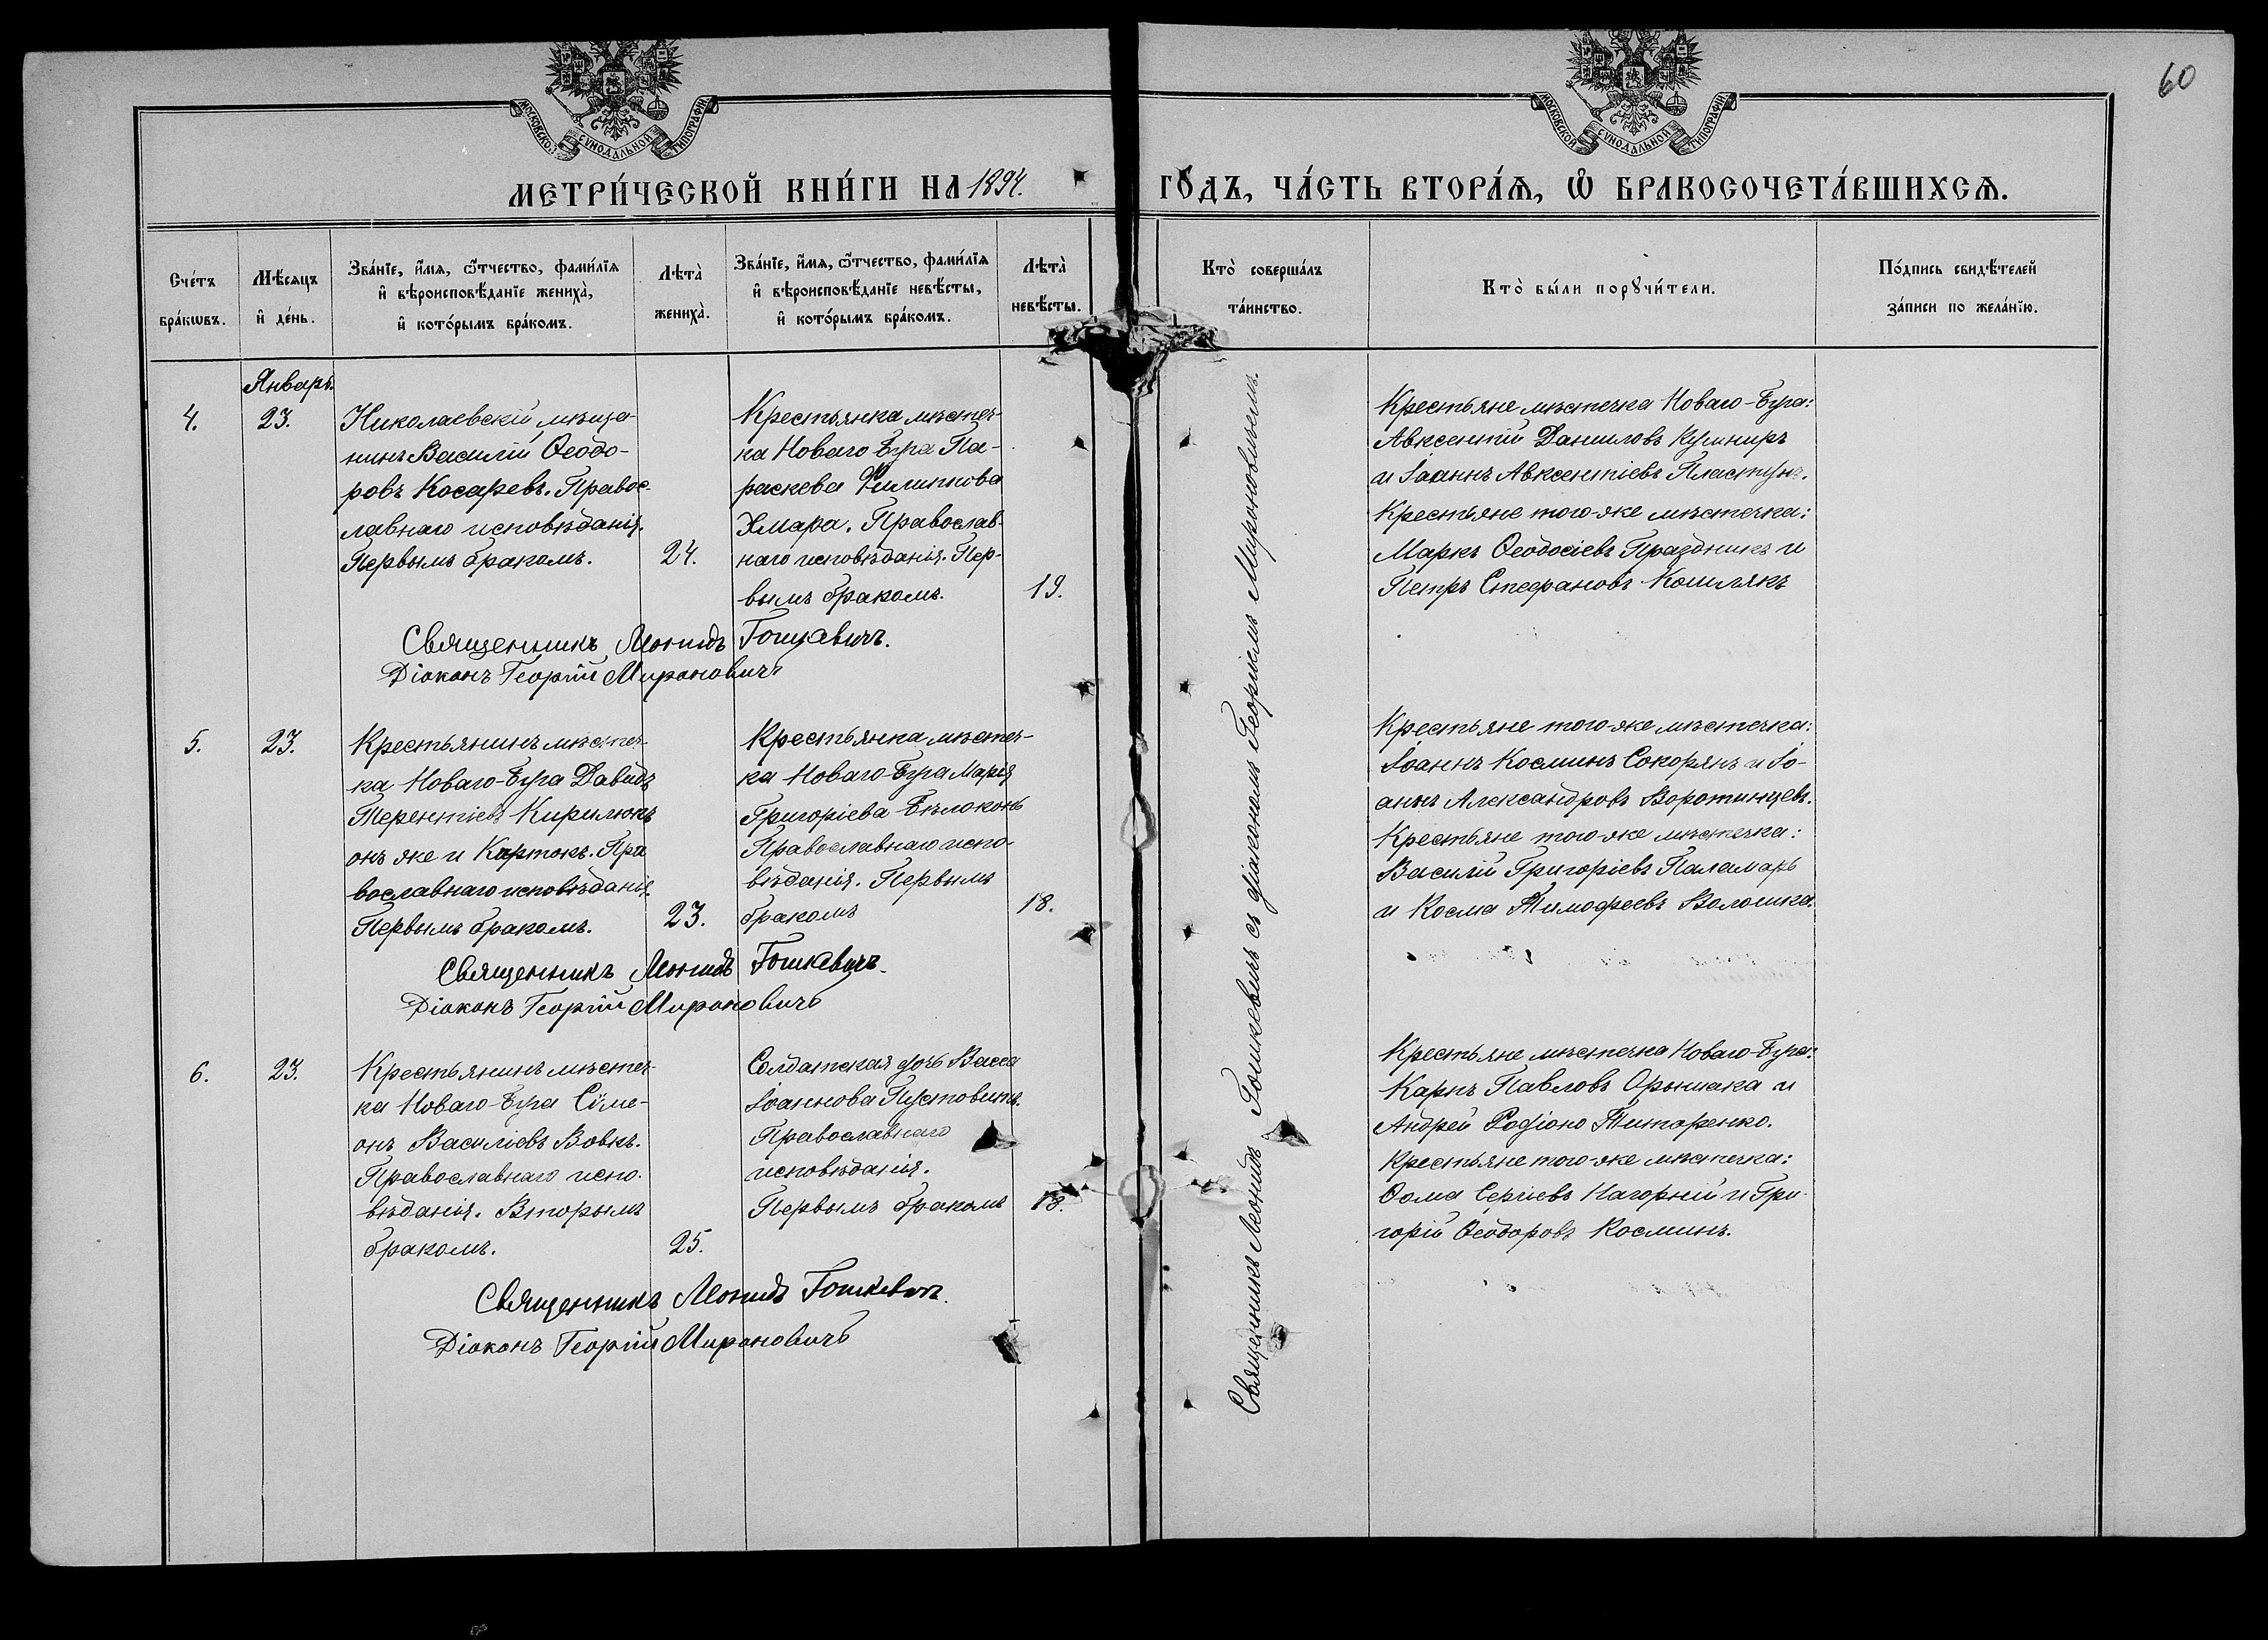 60
МОСКОВСКОЙ СѴНОДАЛЬНОЙ ТИПОГРАФІИ
МОСКОВСКОЙ СѴНОДАЛЬНОЙ ТИПОГРАФІИ
МЕТРИ́ЧЕСКОЙ КНИ́ГИ НА 1894. ГО́ДЪ, ЧА́СТЬ ВТОРА́Ѧ, Ѽ БРАКОСОЧЕТА́ВШИХСѦ.
Сче́тъ бра́кѡвъ.
Мѣ́сяцъ и҆ де́нь.
Зва́нїе, и҆́мѧ, ѻ҆́тчество, фами́лїѧ
и҆ вѣроисповѣ́данїе жениха̀,
и҆ кото́рымъ бра́комъ.
Лѣта̀ жениха̀.
Зва́нїе, и҆́мѧ, ѻ҆́тчество, фами́лїѧ
и҆ вѣроисповѣ́данїе невѣ́сты,
и҆ кото́рымъ бра́комъ.
Лѣта̀ невѣ́сты.
Кто̀ соверша́лъ
та́инство.
Кто̀ бы́ли порꙋчи́тели.
По́дпись свидѣ́телей
за́писи по жела́нїю.
Январь.
4.
23.
Николаевскій мѣща-
нинъ Василій Ѳеодо-
ровъ Косаревъ. Правос-
лавнаго исповѣданія.
Первымъ бракомъ.
24.
Крестьянка мѣстеч-
ка Новаго Буга Па-
раскева Филиппова
Хмара. Православ-
наго исповѣданія. Пер-
вымъ бракомъ.
19.
Священникъ Леонидъ Гошкевичъ.
Діаконъ Георгій Мироновичъ
Крестьяне мѣстечка Новаго-Буга:
Авксентій Даниловъ Кушниръ
и Іоаннъ Авксентіевъ Пластунъ.
Крестьяне того-же мѣстечка:
Маркъ Ѳеодосіевъ Праздникъ и
Петръ Стефановъ Кошлякъ
5.
23.
Крестьянинъ мѣстеч-
ка Новаго-Буга Давидъ
Терентіевъ Кирилюкъ
онъ же и Картокъ. Пра
вославнаго исповѣданія.
Первымъ бракомъ.
23.
Крестьянка мѣстеч-
ка Новаго-Буга Марія
Григоріева Бѣлоконь
Православнаго испо-
вѣданія. Первымъ
бракомъ
18.
Священникъ Леонидъ Гошкевичъ.
Діаконъ Георгій Мироновичъ
Крестьяне того-же мѣстечка:
Іоаннъ Косминъ Сокорянъ и Іо-
аннъ Александровъ Воротинцевъ.
Крестьяне того-же мѣстечка:
Василій Григоріевъ Паламарь
и Косма Тимофеевъ Волошка.
6.
23.
Крестьянинъ мѣстеч-
ка Новаго-Буга Сѵме-
онъ Василіевъ Вовкъ.
Православнаго испо-
вѣданія. Вторымъ
бракомъ.
25.
Солдатская дочь Васса
Іоаннова Пустовитъ.
Православнаго
исповѣданія.
Первымъ бракомъ
18.
Священникъ Леонидъ Гошкевичъ.
Діаконъ Георгій Мироновичъ
Крестьяне мѣстечка Новаго-Буга:
Карпъ Павловъ Орышака и
Андрей Родіоно Титаренко.
Крестьяне того-же мѣстечка:
Ѳома Сергіевъ Нагорный и Гри-
горій Ѳеодоровъ Косминъ.
Священникъ Леонидъ Гошкевичъ съ діакономъ Георгіемъ Мироновичемъ.